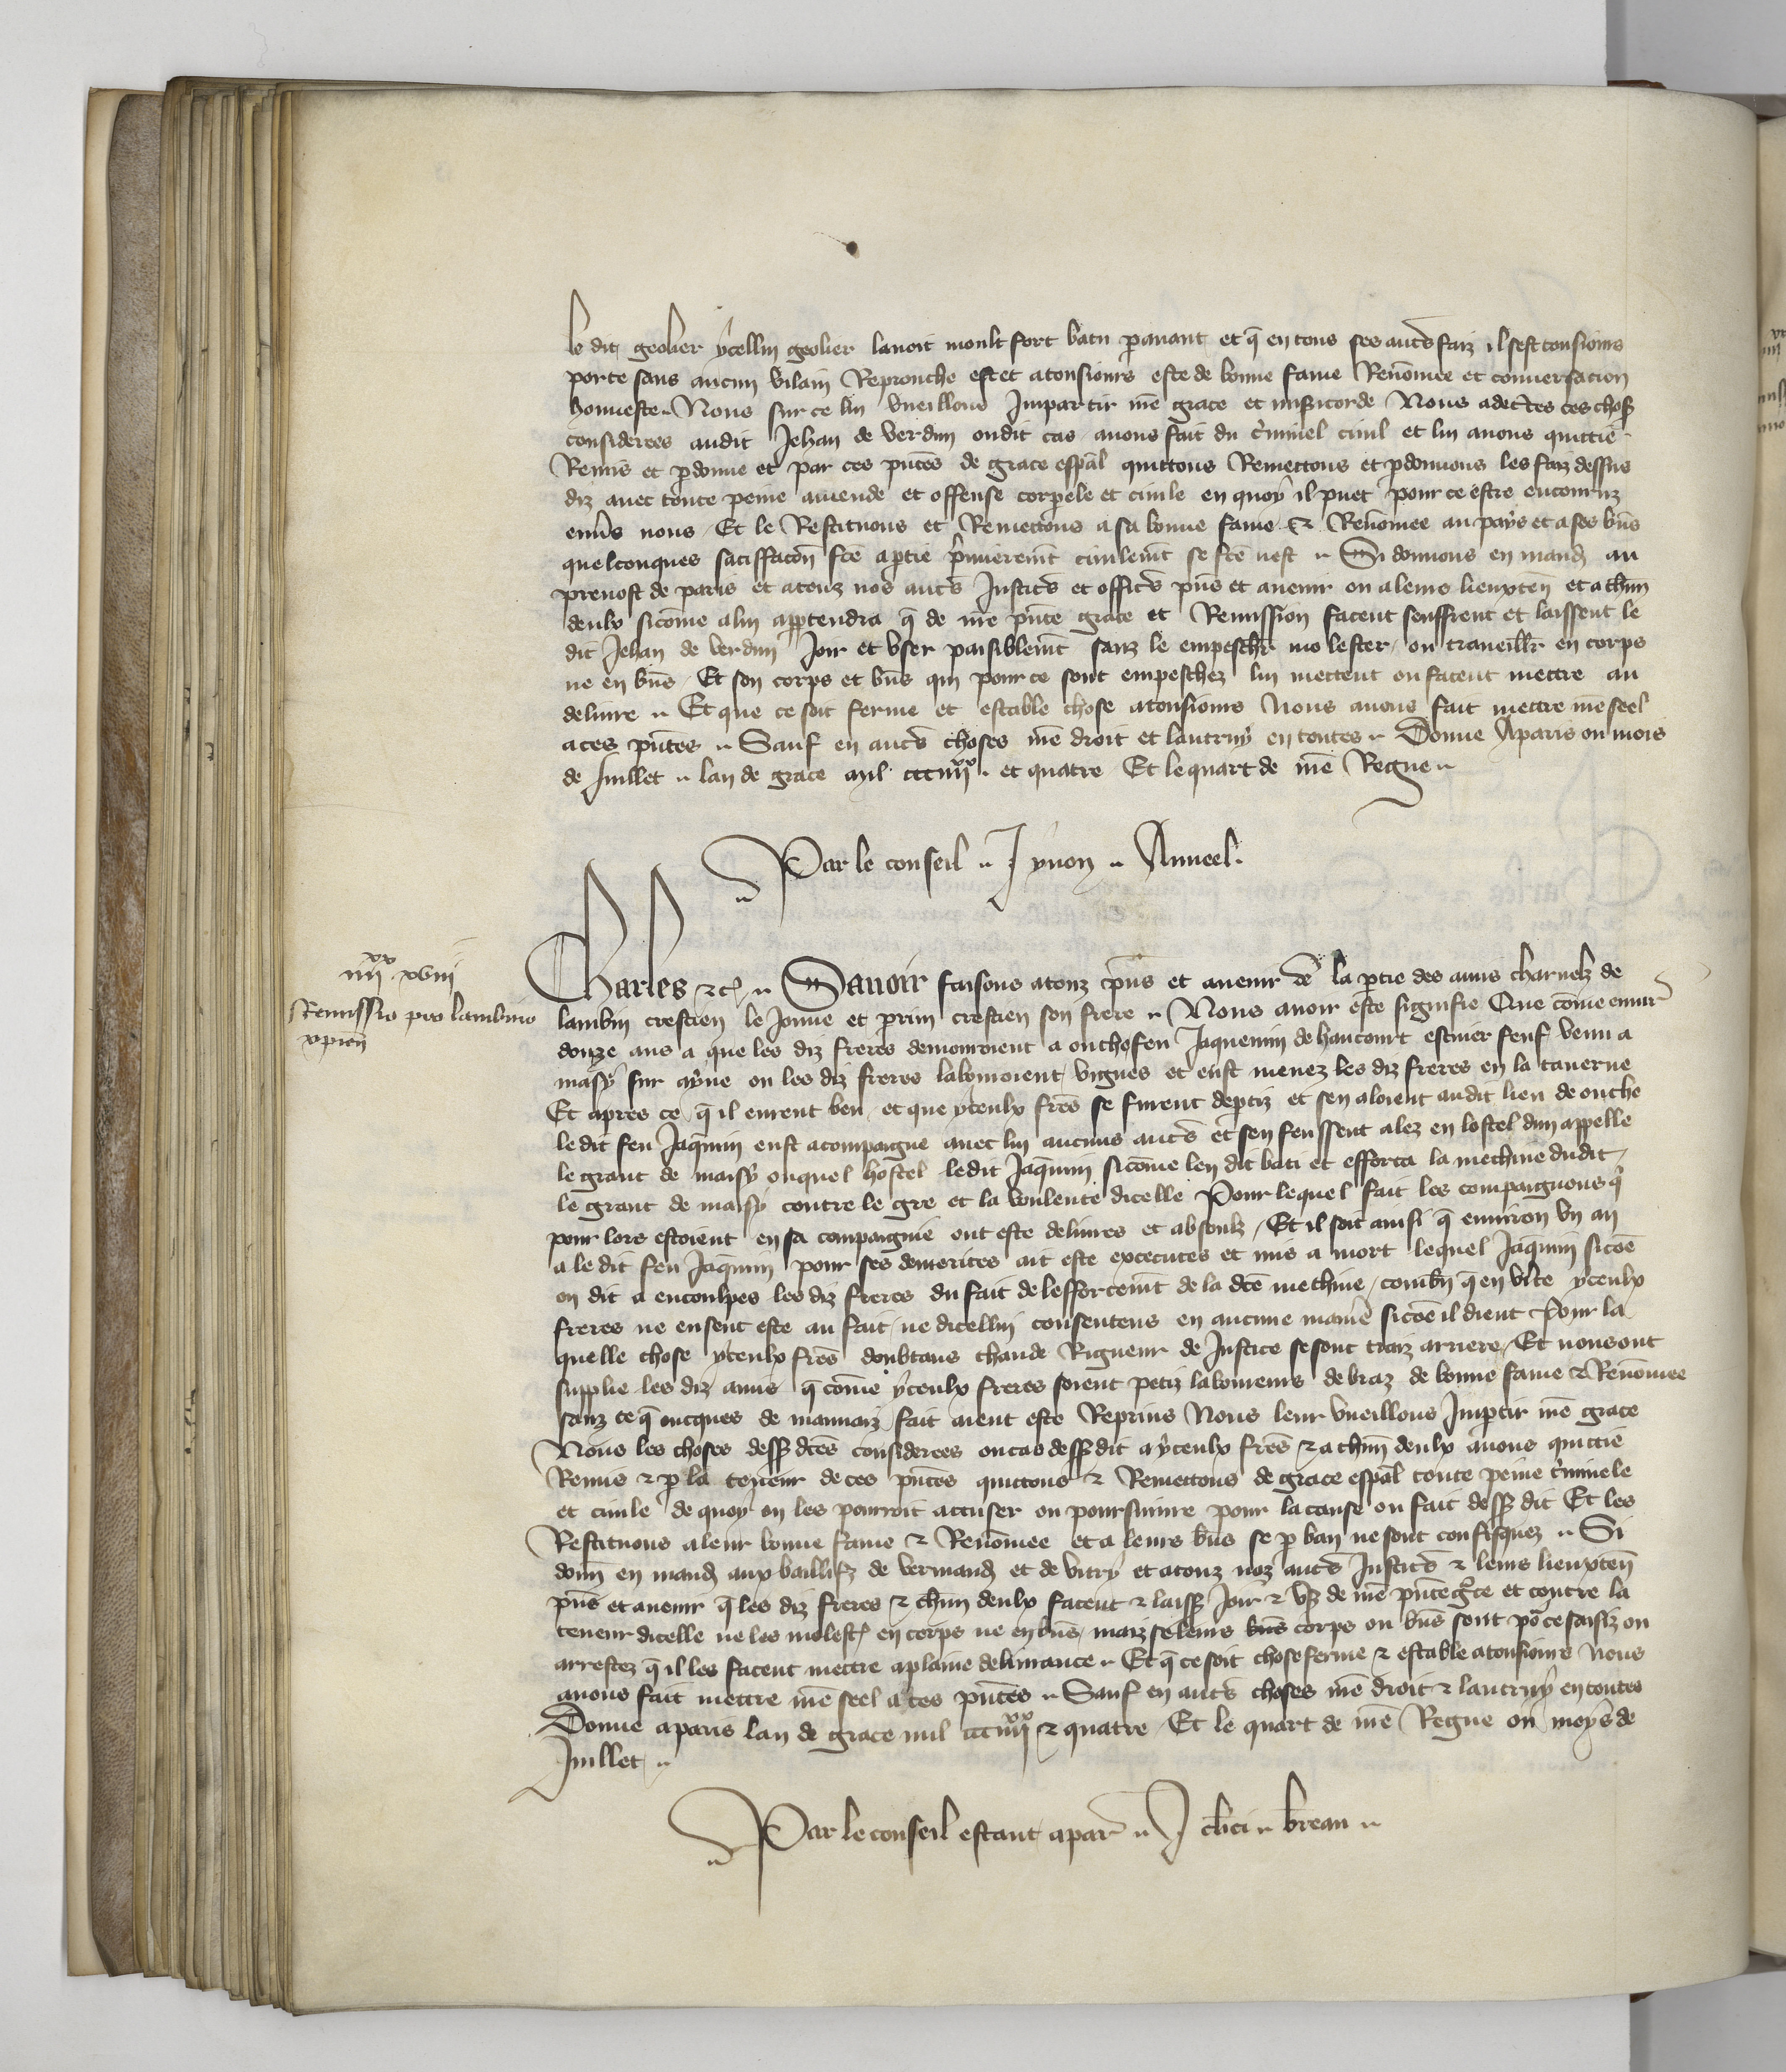 le dit geolier ycellui geolier lauoit moult fort batu parauant et q̃ en tous ses autr̃s faiz il sest tousiours
porte sans aucun vilain Reprouche est et a tousiours este de bonne fame Renõmee et conuersacion
honneste Nous sur ce lui vueillons Impartir nr̃e grace et mis̃icorde Nous adecertes ces choses
considerees audit Jehan de verdun oudit cas auons fait du c̃iminel ciuil et lui auons quittie
Remis et p̱donne et par ces pñtes de grace esp̃al quittons Remettons et p̱donnons les faiz dessus
diz auec toute peine amende et offense corpele et ciuile en quoy il puet pour ce estre encouruz
enũs nous Et le Restituons et Remettons a sa bonne fame et Renõmee au pays et a ses bñs
quelconques satiffacõn fc̃e a p̱tie p̃mieremt̃ ciuilemt̃ se fc̃e nest Si donnons en mand au
preuost de paris et a touz nos autr̃s Justic̃s et offic̃s pñs et auenir ou a leurs lieuxteñ et a chũn
deulx sicõme a lui app̱tendra q̃ de nr̃e pñte grace et Remission facent seuffrent et laissent le
dit Jehan de verdun Joir et vser paisiblemt̃ sanz le empeschr̃ molester ou traueillr̃ en corps
ne en bñs Et son corps et bñs qui pour ce sont empeschez lui mettent ou facent mettre au
deliure Et que ce soit ferme et estable chose a tousiours Nous auons fait mettre nr̃e seel
a ces pñtes Sauf en autr̃s choses nr̃e droit et lautruy en toutes Donne A paris ou mois
de Juillet lan de grace mil ccc iiii xx et quatre Et le quart de nr̃e Regne
Par le conseil J yuon Anneel
iiii xx xviii
Remissio pro lambino
xpieñ
Charles etc̃ Sauoir faisons a touz pñs et auenir de la p̱tie des amis charnelz de
lambin crestien le Jonne et perrin crestien son frere Nous auoir este signifie Que cõme enuir
douze ans a que les diz freres demouroient a ouche feu Jaquemin de haucourt escuier feust venu a
maisy sur ayne ou les diz freres labouroient vignes et eust menez les diz freres en la tauerne
Et apres ce q̃ il eurent beu et que yceulx frer̃s se furent dep̱tiz et sen aloient audit lieu de ouche
le dit feu Jaquemin eust acompaigne auec lui aucuns autr̃s et sen feussent alez en lostel dun appelle
le grant de maisy ouquel hostel ledit Jaquemin sicõme len dit bati et efforca la mechine dudit
le grant de maisy contre le gre et la voulente dicelle Pour lequel fait les compaignons q̃
pour lors estoient en sa compaignie ont este deliures et absoulz Et il soit ainsi q̃ enuiron vn an
a le dit feu Jaquemin pour ses demerites ait este executes et mis a mort lequel Jaquemin sicõe
on dit a encoulpes les diz freres du fait de lefforcemt̃ de la dc̃e mechine combñ q̃ en vite yceulx
freres ne eussent este au fait ne dicellui consentens en aucune manie sicõe il dient Pour la
quelle chose yceulx frer̃s doubtans chaude Rigueur de Justice se sont traiz arriere Et nous ont
supplie les diz amis q̃ cõme yceulx freres soient petiz laboureurs de braz de bonne fame et Renõmee
sanz ce q̃ oncques de mauuaiz fait aient este Reprins Nous leur vueillons Imp̱tir nr̃e grace
Nous les choses dess dc̃es considerees ou cas dess dit a yceulx frer̃s et a chũn deulx auons quittie
Remis et p̱ la teneur de ces pñtes quittons et Remettons de grace esp̃al toute peine c̃iminele
et ciuile de quoy on les pourroit accuser ou poursuiure pour la cause ou fait dess dit Et les
Restituons a leur bonne fame et Renõmee et a leurs bñs se p̱ ban ne sont confisquez Si
donñ en mand aux baillifz de vermand et de vitry et a touz noz autr̃s Justic̃s et leurs lieuxteñ
pñs et auenir q̃ les diz freres et chũn deulx facent et laiss Joir et vs de nr̃e pñte gr̃ce et contre la
teneur dicelle ne les molest en corps ne en bñs maiz se leurs bñs corps ou bñs sont põ ce saisiz ou
arrestez q̃ il les facent mettre a plaine deliurance Et q̃ ce soit chose ferme et estable a tousiours Nous
auons fait mettre nr̃e seel a ces pñtes Sauf en autr̃s choses nr̃e droit et lautruy en toutes
Donne a paris lan de grace mil ccc iiii xx et quatre Et le quart de nr̃e Regne ou moys de
Juillet
Par le conseil estant a par J clici breau